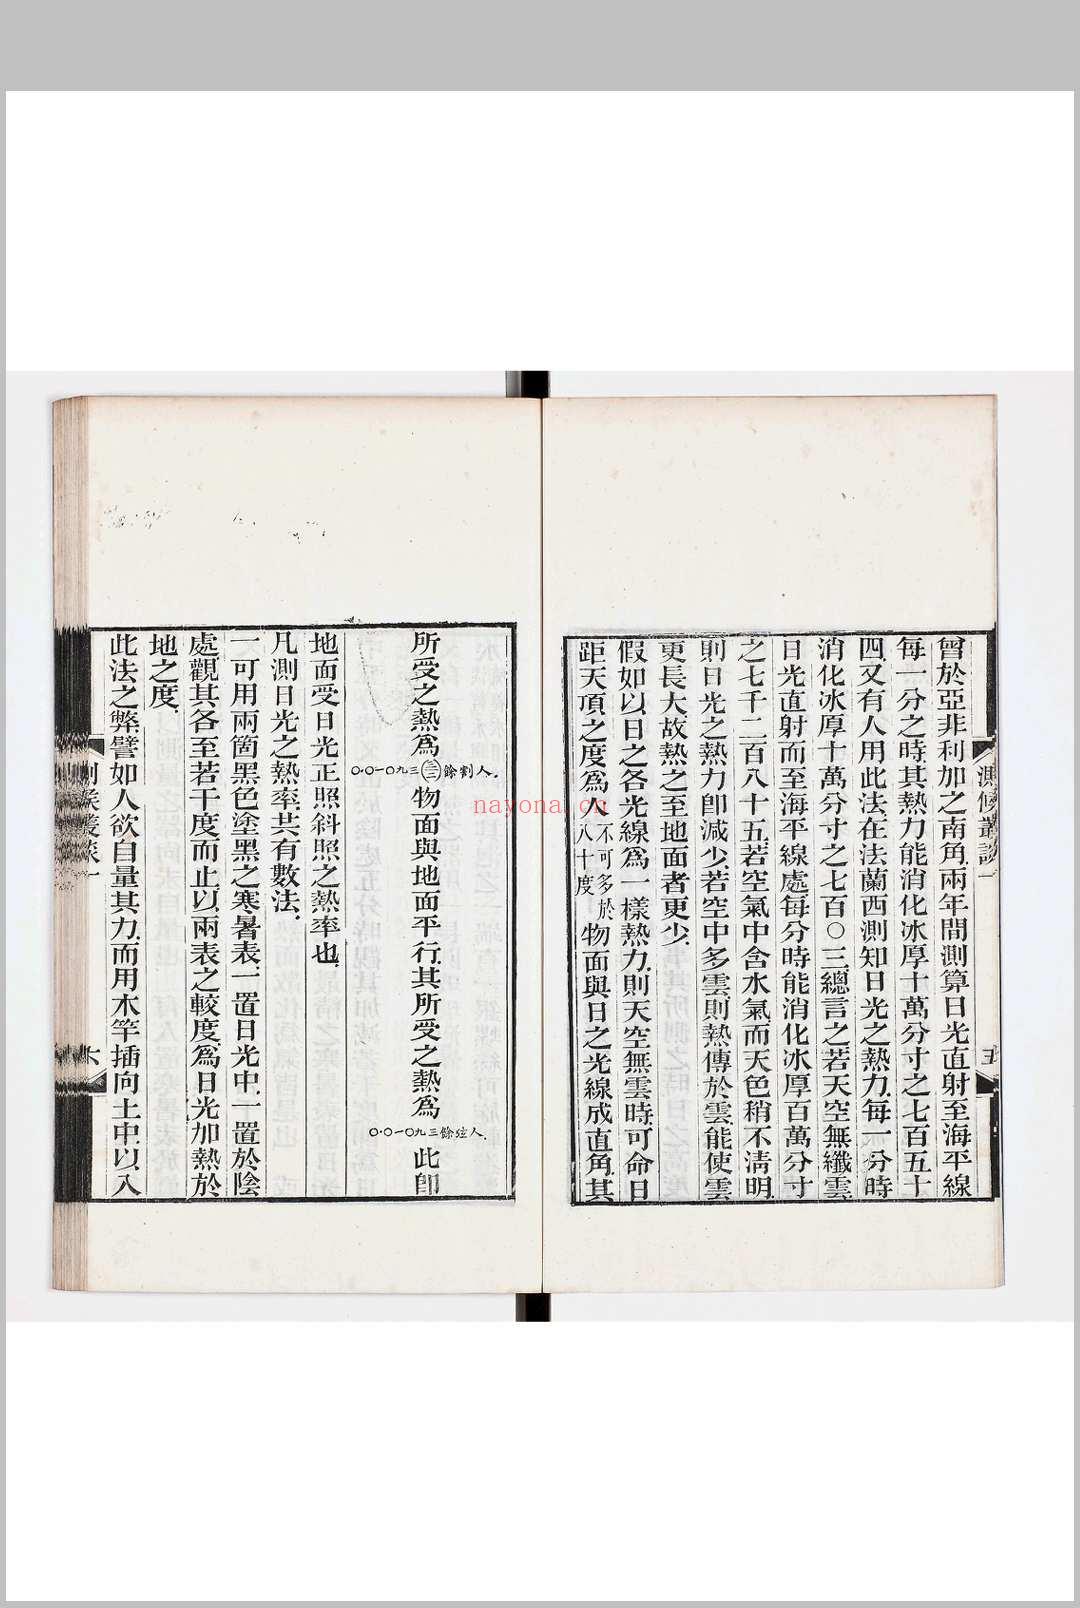 曾於亞非利加之南角兩年間測算日光直射至海平線
每一分之時其熱力能消化冰厚十萬分寸之七百五十
四又有人用此法在法蘭西測知日光之熱力每一分時
消化冰厚十萬分寸之七百〇三總言之若天空無纖雲
日光直射而至海平線處每分時能消化冰厚百萬分寸
之七千二百八十五若空氣中含水氣而天色稍不淸明
則日光之熱力卽減少若空中多雲則熱傳於雲能使雲
更長大故熱之至地面者更少
假如以日之各光線爲一樣熱力則天空無雲時可命日
距天頂之度爲人不可多於八十度物面與日之光線成直角其
測候叢談一
五
所受之熱爲
〇·〇一〇九三
人割餘
物面與地面平行其所受之熱爲
〇·〇一〇九三餘
人
此卽
地面受日光正照斜照之熱率也
凡測日光之熱率共有數法
一可用兩箇黑色塗黑之寒暑表一置日光中一置於陰
處觀其各至若干度而止以兩表之較度爲日光加熱於
地之度
此法之弊譬如人欲自量其力而用木竿插向土中以入
六
nayona.cn